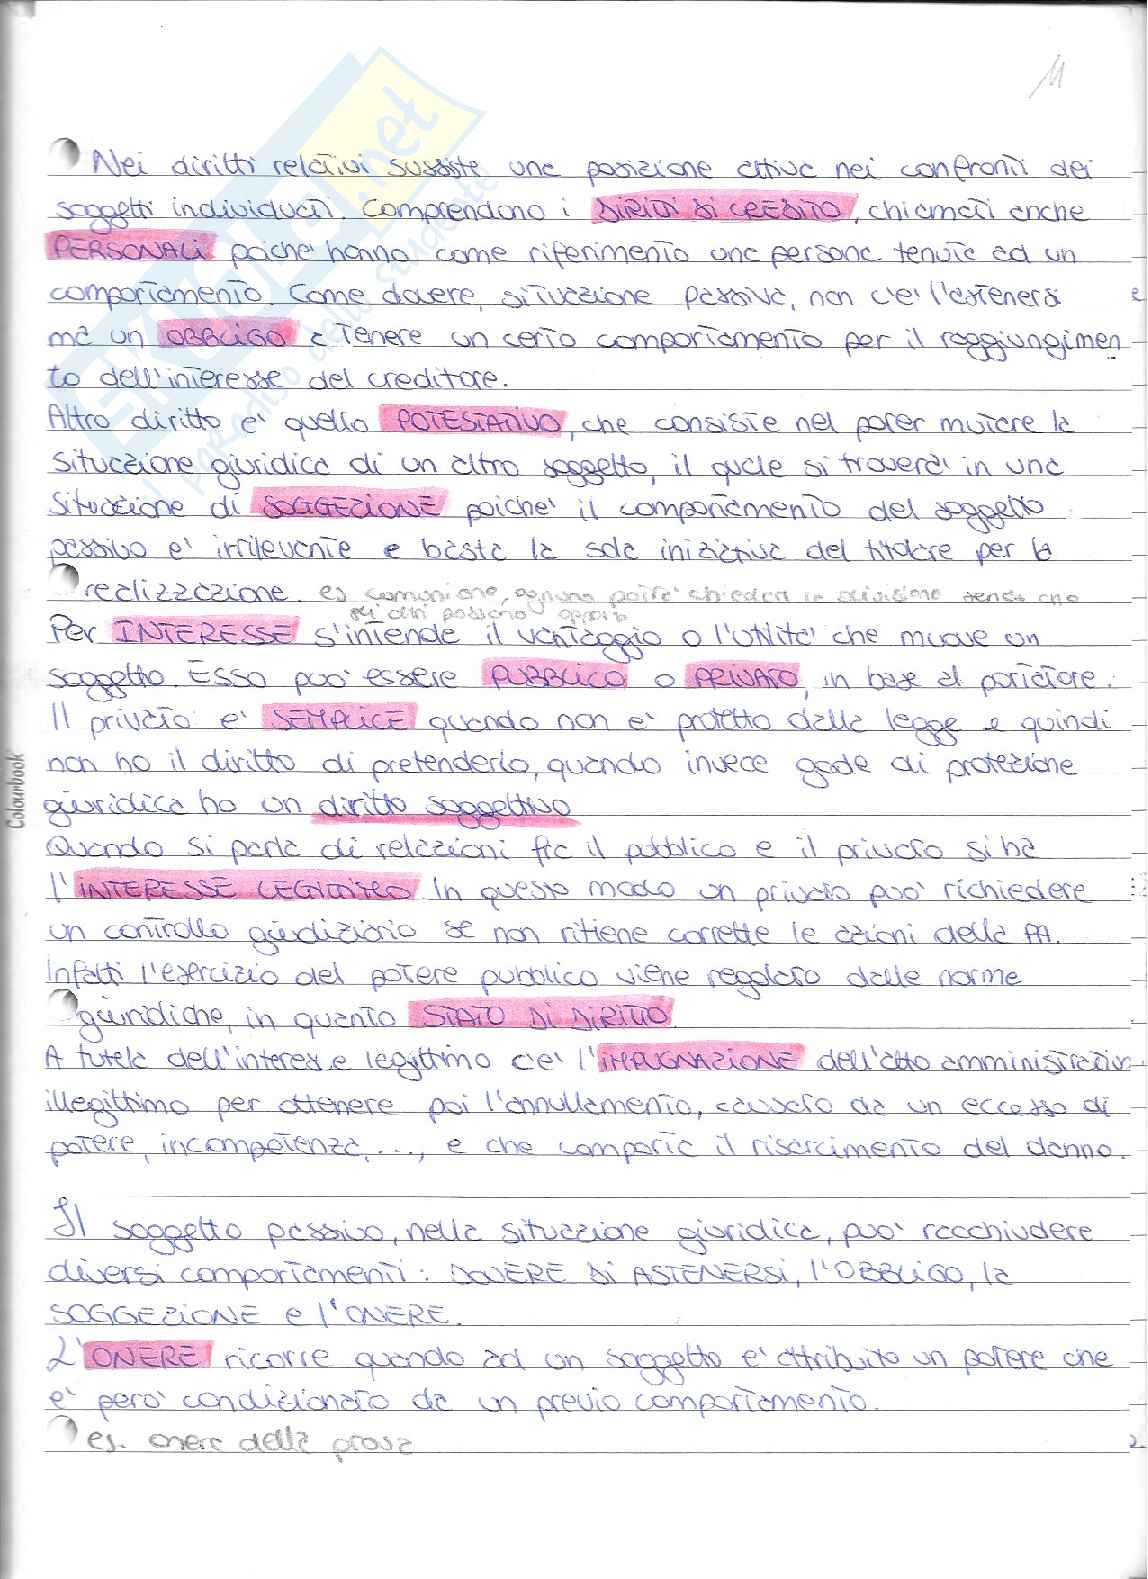 11
Nei diritti relativi sussiste una posizione attiva nei confronti dei
soggetti individuati. Comprendono i DIRITTI DI CREDITO, chiamati anche
PERSONALI poichè hanno come riferimento una persona tenuta ad un
comportamento. Come dovere, situazione passiva, non c'è l'astenersi
ma un OBBLIGO a tenere un certo comportamento per il raggiungimen
to dell'interesse del creditore.
Altro diritto è quello POTESTATIVO, che consiste nel poter mutare la
situazione giuridica di un altro soggetto, il quale si troverà in una
situazione di SOGGEZIONE poichè il comportamento del soggetto
passivo è irrilevante e basta la sola iniziativa del titolare per la
realizzazione. es comunione, ognuno potrà chiedere la divisione senza che
gli altri possano opporsi
Per INTERESSE s'intende il vantaggio o l'utilità che muove un
soggetto. Esso può essere PUBBLICO o PRIVATO, in base al portatore.
Il privato è SEMPLICE quando non è protetto dalla legge e quindi
non ho il diritto di pretenderlo, quando invece gode di protezione
giuridica ho un diritto soggettivo
Quando si parla di relazioni fra il pubblico e il privato si ha
l'INTERESSE LEGITTIMO. In questo modo un privato può richiedere
un controllo giudiziario se non ritiene corrette le azioni della PA.
Infatti l'esercizio del potere pubblico viene regolato dalle norme
giuridiche, in quanto STATO DI DIRITTO.
A tutela dell'interesse legittimo c'è l'IMPUGNAZIONE dell'atto amministrativo
illegittimo per ottenere poi l'annullamento, causato da un eccesso di
potere, incompetenza, ..., e che comporta il risarcimento del danno.
Il soggetto passivo, nella situazione giuridica, può racchiudere
diversi comportamenti: DOVERE DI ASTENERSI, l'OBBLIGO, la
SOGGEZIONE e l'ONERE.
L'ONERE ricorre quando ad un soggetto è attribuito un potere che
è però condizionato da un previo comportamento.
es. onere della prova
Colourbook
SKUOLA.net
il paradiso dello studente